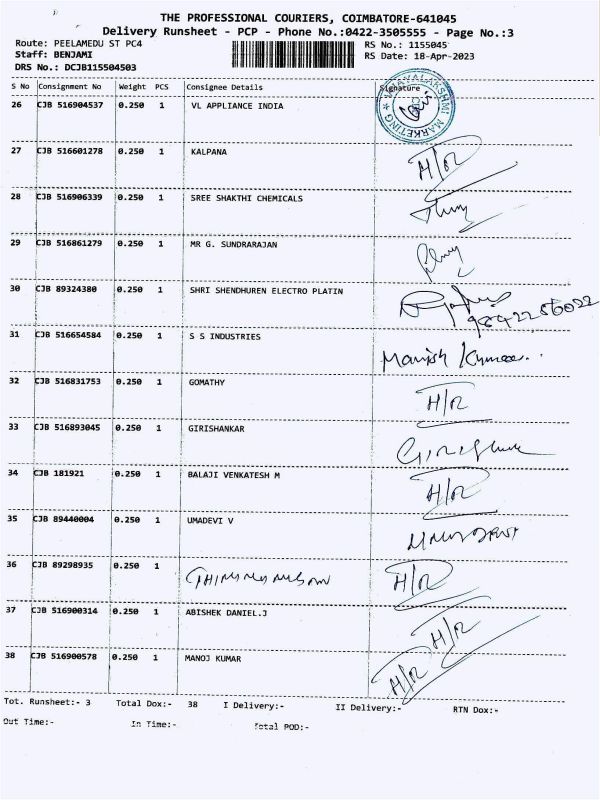 THE PROFESSIONAL COURIERS, COIMBATORE-641045
Delivery Runsheet - PCP - Phone No.:0422-3505555 - Page No.:3
Route: PEELAMEDU ST PC4 RS No.: 1155045
Staff: BENJAMI RS Date: 18-Apr-2023
DRS No.: DCJB115504503
S No Consignment No Weight PCS Consignee Details Signature
26 CJB 516904537 0.250 1 VL APPLIANCE INDIA
VIJAYALAKSHMI MARKETING
27 CJB 516601278 0.250 1 KALPANA H/R
28 CJB 516906339 0.250 1 SREE SHAKTHI CHEMICALS
29 CJB 516861279 0.250 1 MR G. SUNDRARAJAN
30 CJB 89324380 0.250 1 SHRI SHENDHUREN ELECTRO PLATIN
31 CJB 516654584 0.250 1 S S INDUSTRIES Manish Kumar..
32 CJB 516831753 0.250 1 GOMATHY H/R
33 CJB 516893045 0.250 1 GIRISHANKAR
34 CJB 181921 0.250 1 BALAJI VENKATESH M H/R
35 CJB 89440004 0.250 1 UMADEVI V
36 CJB 89298935 0.250 1 H/R
37 CJB 516900314 0.250 1 ABISHEK DANIEL.J H/R
38 CJB 516900578 0.250 1 MANOJ KUMAR H/R
Tot. Runsheet:- 3 Total Dox:- 38 I Delivery:- II Delivery:- RTN Dox:-
Out Time:- In Time:- Total POD:-